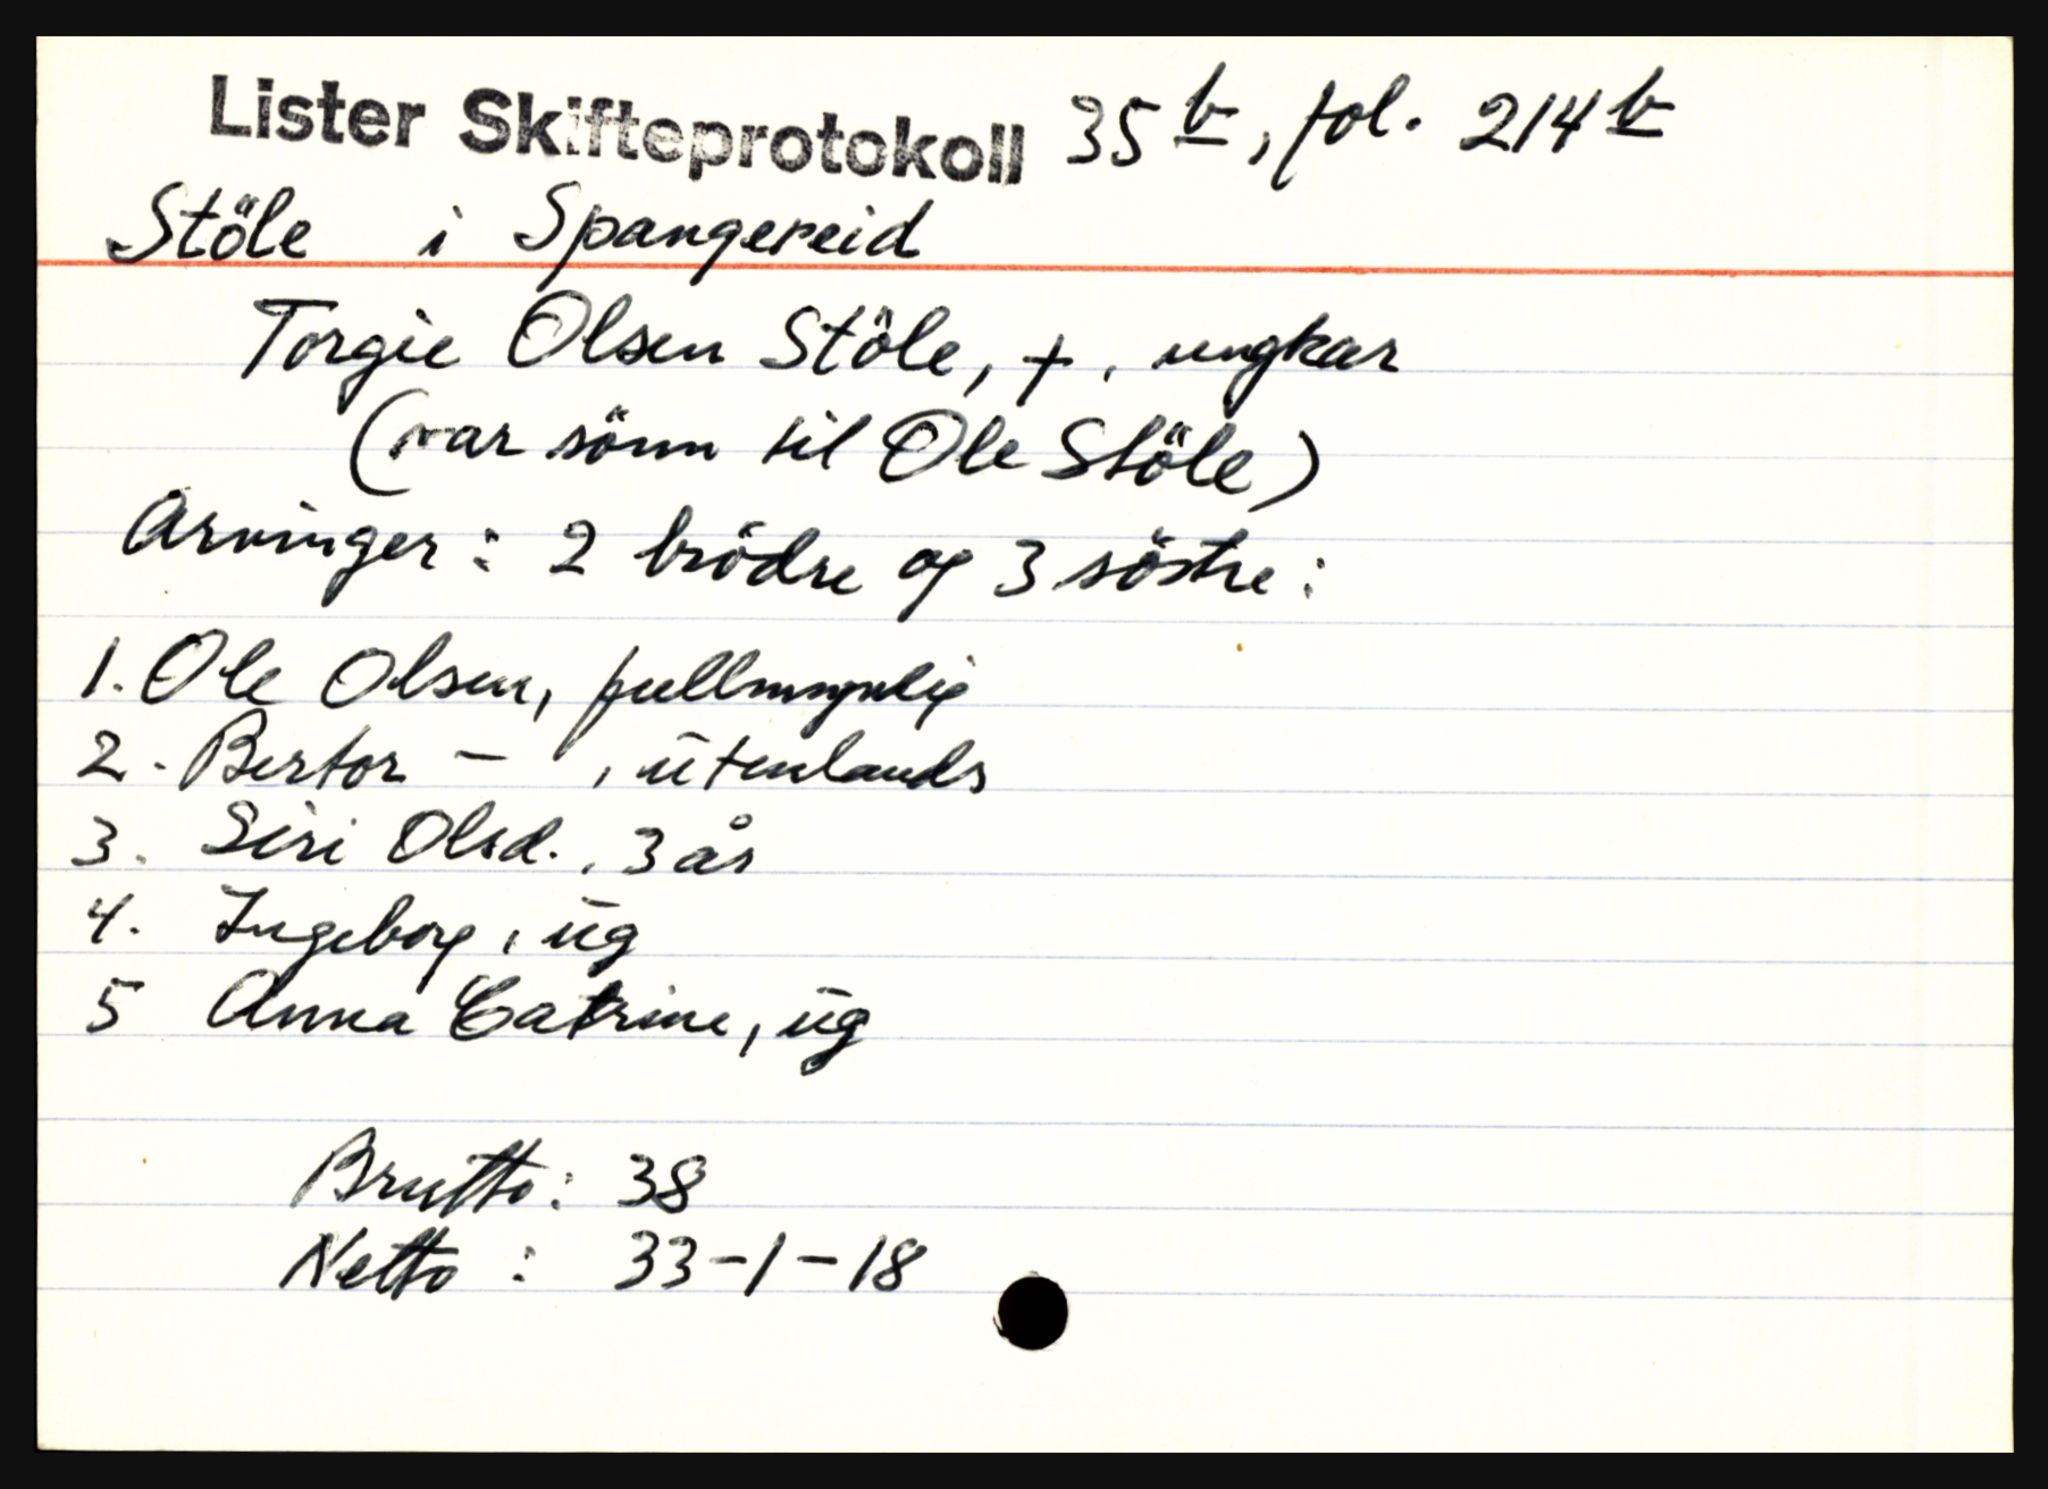 Lister Skifteprotokoll 35 b, fol. 214 b
Stöle i Spangereid
Torgie Olsen Stöle, +, ungkar
(var sönn til Ole Stöle)
Arvinger: 2 brödre og 3 söstre:
1. Ole Olsen, fullmyndig
2. Bertor — , utenlands
3. Siri Olsd., 3 år
4. Ingeborg, ug
5 Anna Catrine, ug
Brutto: 38
Netto: 33-1-18